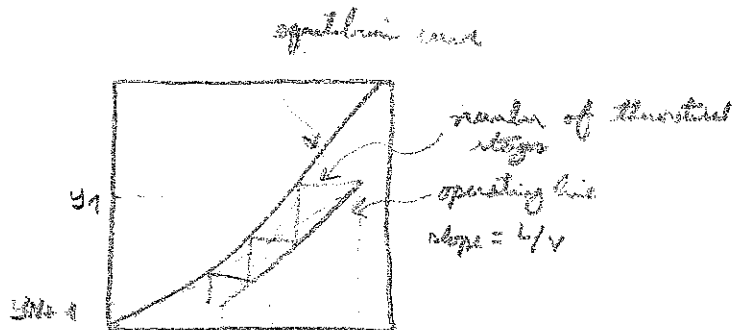 equilibrium curve
number of theoretical
stages
y1
operating line
slope = L/V
yN+1